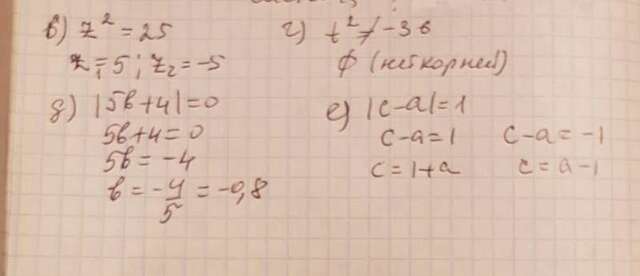 в) z² = 25
z₁ = 5 ; z₂ = -5
г) t² ≠ -36
∅ (нет корней)
д) |5b+4| = 0
5b+4 = 0
5b = -4
b = -4/5 = -0,8
е) |c-a| = 1
c-a = 1 c-a = -1
c = 1+a c = a-1